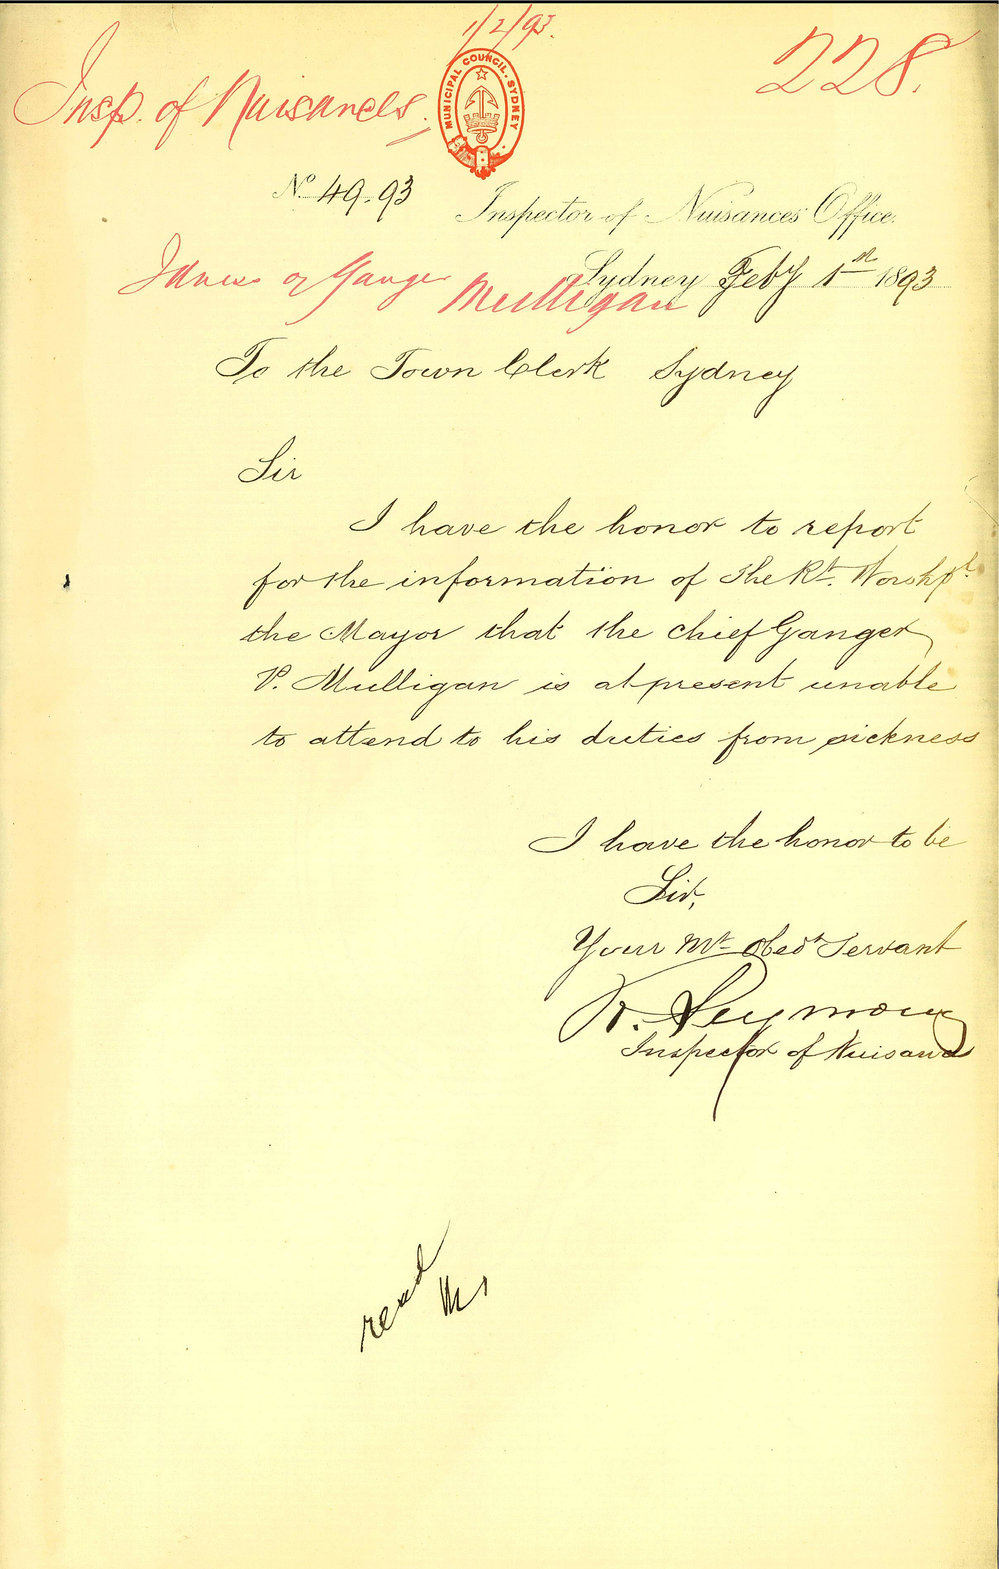 1/2/93.
228.
Insp. of Nuisances.
MUNICIPAL COUNCIL. SYDNEY.
No. 49.93
Inspector of Nuisances Office.
Illness of Ganger Mulligan
Sydney Feby 1st 1893
To the Town Clerk Sydney
Sir
I have the honor to report
for the information of The Rt. Worshpl.
the Mayor that the chief Ganger
P. Mulligan is at present unable
to attend to his duties from sickness
I have the honor to be
Sir,
Your Mt Obedt Servant
R. Seymour
Inspector of Nuisances
read